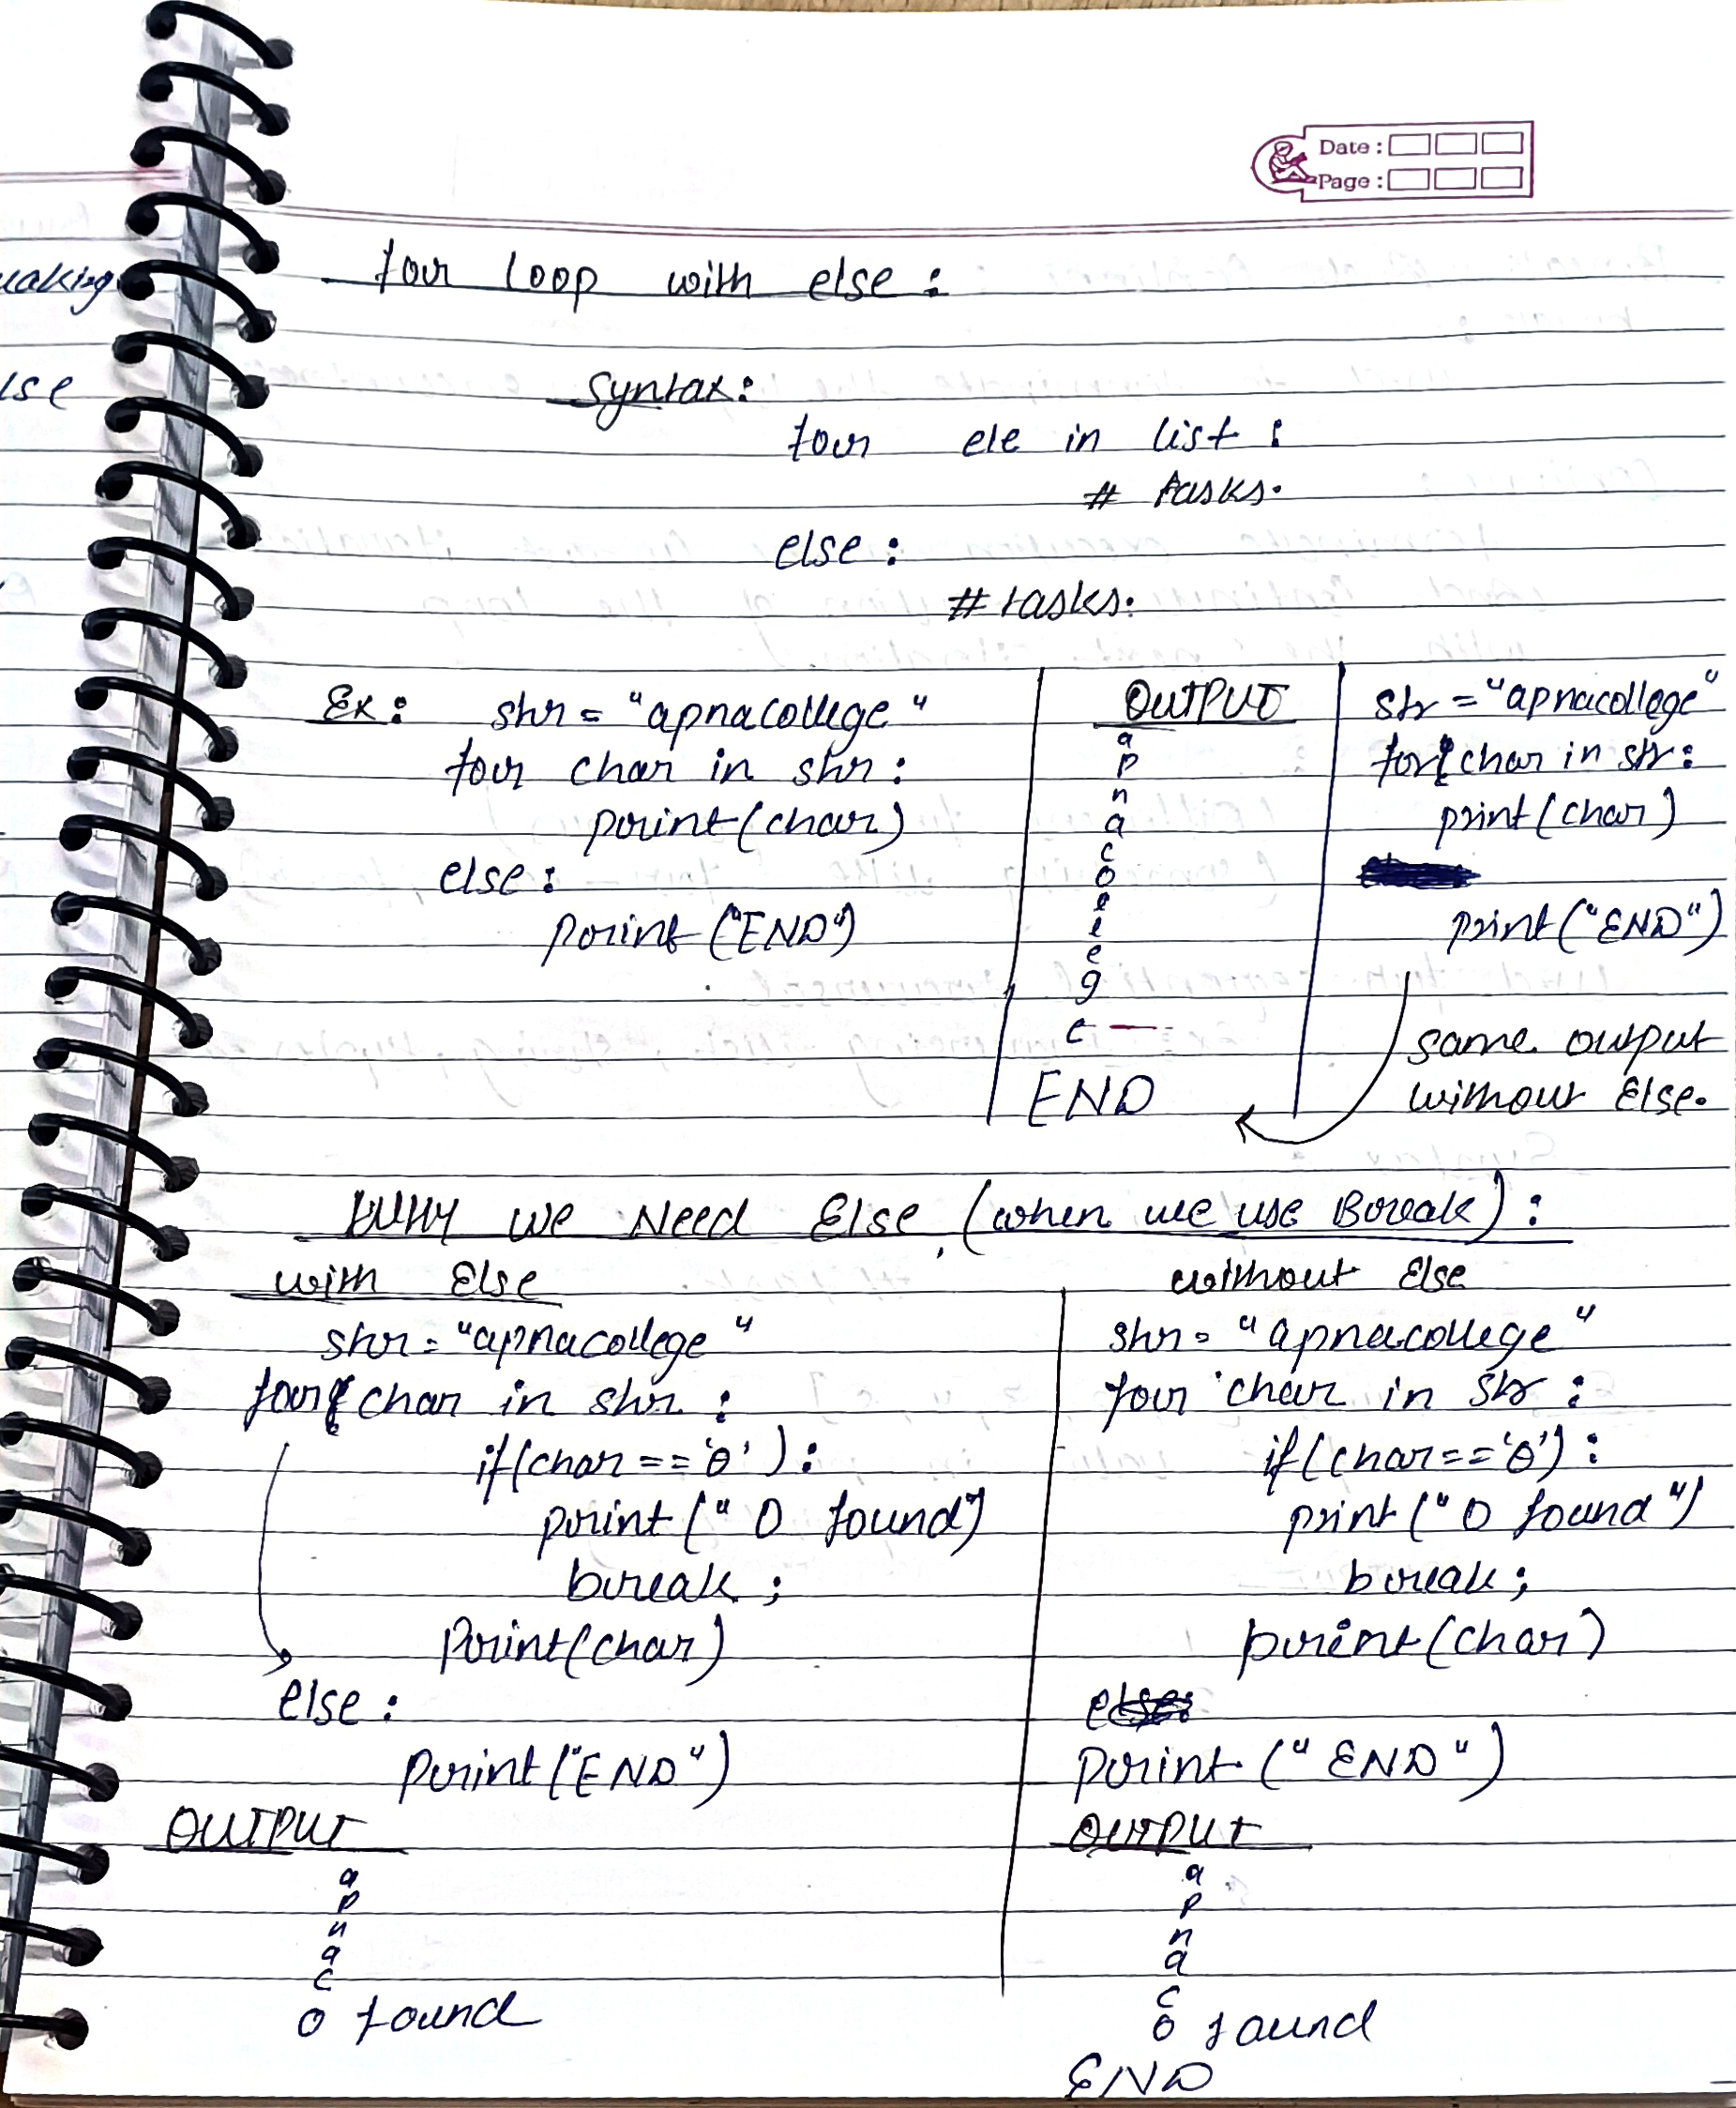 Date :
Page :
for loop with else :
Syntax:
for ele in list :
# tasks.
else :
# tasks.
Ex: str = "apnacollege"
for char in str :
print(char)
else :
print("END")
OUTPUT
a
p
n
a
c
o
l
l
e
g
e
END
str = "apnacollege"
for char in str:
print(char)
print("END")
same output
without Else.
WHY we Need Else (when we use Break) :
with Else
str = "apnacollege"
for char in str :
if(char == 'o') :
print(" O found")
break ;
Print(char)
else :
Print("END")
OUTPUT
a
p
n
a
c
o found
without Else
str = "apnacollege"
for char in str :
if(char == 'o') :
print(" O found")
break ;
print(char)
else:
print(" END ")
OUTPUT
a
p
n
a
c
o found
END
eaking
lse